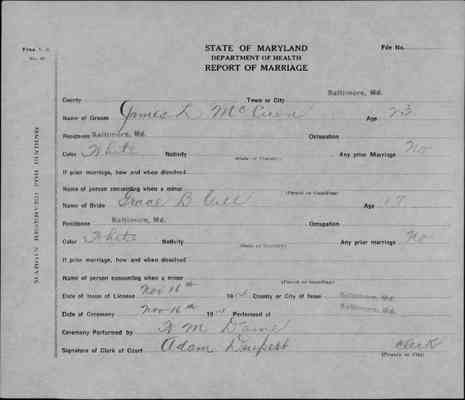 STATE OF MARYLAND
DEPARTMENT OF HEALTH
REPORT OF MARRIAGE
File No.
MARGIN RESERVED FOR BINDING
County Town or City Baltimore, Md.
Name of Groom James Age 23
Residence Baltimore, Md. Occupation
Color White Nativity (State or Country) Any prior Marriage No
If prior marriage, how and when dissolved
Name of person consenting when a minor (Parent or Guardian)
Name of Bride Grace B Age 17
Residence Baltimore, Md. Occupation
Color White Nativity (State or Country) Any prior marriage No
If prior marriage, how and when dissolved
Name of person consenting when a minor (Parent or Guardian)
Date of Issue of License Nov 16th County or City of Issue Baltimore, Md.
Date of Ceremony Nov 16th Performed at Baltimore, Md.
Ceremony Performed by M
Signature of Clerk of Court Adam Clerk
(County or City)